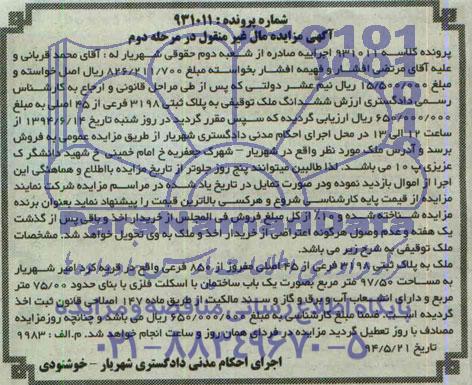 شماره پرونده: ۹۳۱۰۱۱
آگهی مزایده مال غیر منقول در مرحله دوم
پرونده کلاسه ۹۳۱۰۱۱ اجراییه صادره از شعبه دوم حقوقی شهریار له: آقای محمد قربانی و
علیه آقای مرتضی افشار و فهیمه افشار بخواسته مبلغ ۸۲۶/۲۰۱/۷۰۰ ریال اصل خواسته و
مبلغ ۱۵/۵۰۰/۰۰۰ ریال نیم عشر دولتی که پس از طی مراحل قانونی و ارجاع به کارشناس
رسمی دادگستری ارزش ششدانگ ملک توقیفی به پلاک ثبتی ۳۱۹۸ فرعی از ۴۵ اصلی به مبلغ
۶۵۰/۰۰۰/۰۰۰ ریال ارزیابی گردیده که سپس مقرر گردید در روز شنبه تاریخ ۱۳۹۴/۶/۱۴ از
ساعت ۱۲ الی ۱۳ در محل اجرای احکام مدنی دادگستری شهریار از طریق مزایده عمومی به فروش
برسد و آدرس ملک مورد نظر واقع در شهریار – شهرک جعفریه خ امام خمینی خ شهید دانشگر ک
عزیزی پ ۱۰ می باشد. لذا طالبین میتوانند پنج روز جلوتر از تاریخ مزایده با اطلاع و هماهنگی این
اجرا از اموال بازدید نموده ودر صورت تمایل در تاریخ یاد شده در مراسم مزایده شرکت نمایند
مزایده از قیمت پایه کارشناسی شروع و هرکسی بالاترین قیمت را پیشنهاد نماید بعنوان برنده
مزایده شناخته شده و ۱۰٪ از کل مبلغ فروش فی المجلس از خریدار اخذ و باقی پس از گذشت
یک هفته و عدم وصول هرگونه اعتراضی از خریدار اخذ و ملک به وی تحویل خواهد شد. مشخصات
ملک توقیفی به شرح زیر می باشد.
ملک به پلاک ثبتی ۳۱۹۸ فرعی از ۴۵ اصلی مفروز از ۸۵۰ فرعی واقع در قریه کرد امیر شهریار
به مساحت ۹۷/۵۰ متر مربع بصورت یک باب ساختمان با اسکلت فلزی با بنای حدود ۷۵/۰۰ متر
مربع و دارای انشعاب آب و برق و گاز و سند مالکیت از طریق ماده ۱۴۷ اصلاحی قانون ثبت اخذ
گردیده است. ضمنا مبلغ کارشناسی به مبلغ ۶۵۰/۰۰۰/۰۰۰ ریال می باشد و چنانچه روز مزایده
مصادف با روز تعطیل گردید مزایده در فردای همان روز و ساعت انجام خواهد شد. م.الف: ۹۹۸۲
تاریخ ۹۴/۵/۲۱
اجرای احکام مدنی دادگستری شهریار – خوشنودی
ParsNamadData
۰۲۱-۸۸۳۴۹۶۷۰-۵